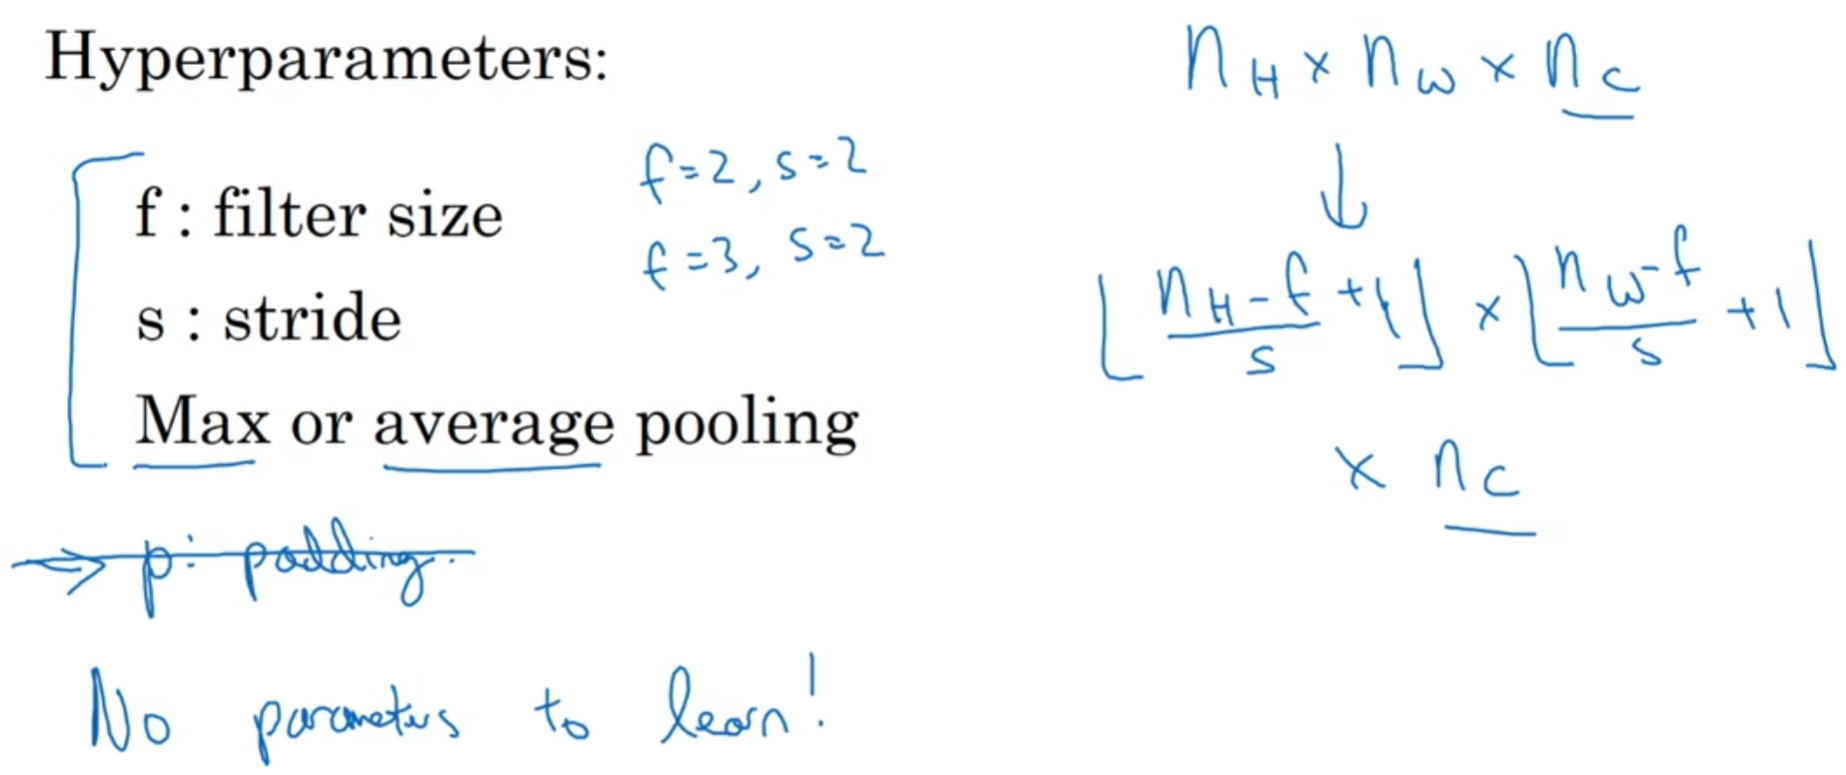 Hyperparameters:
f : filter size
f=2, s=2
s : stride
f=3, s=2
Max or average pooling
p: padding.
No parameters to learn!
n_H × n_W × n_C
↓
⌊(n_H - f)/s + 1⌋ × ⌊(n_W - f)/s + 1⌋
× n_C